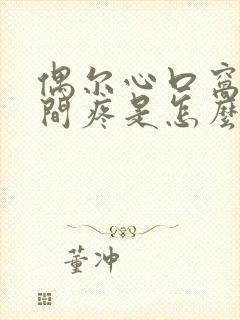 偶尔心口窝
間疼是怎麼
董冲